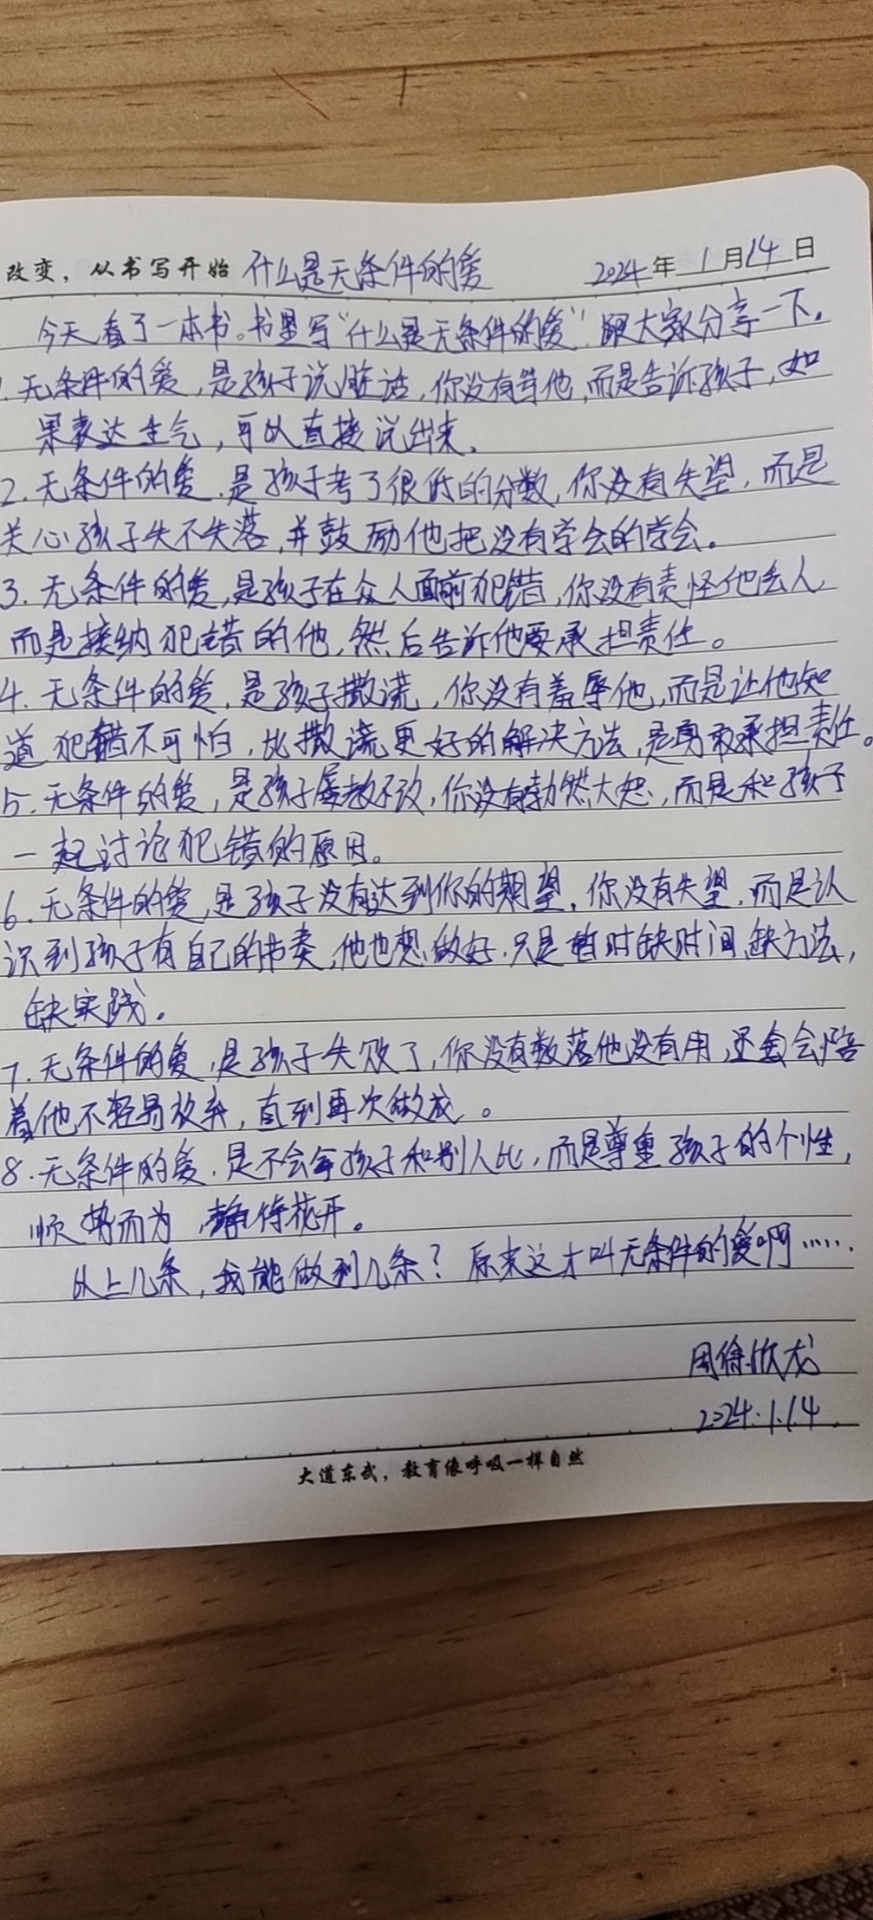 改变，从书写开始 什么是无条件的爱 2024年1月14日
今天看了一本书。书里写“什么是无条件的爱”跟大家分享一下。
1.无条件的爱，是孩子说脏话，你没有骂他，而是告诉孩子，如
果表达生气，可以直接说出来。
2.无条件的爱，是孩子考了很低的分数，你没有失望，而是
关心孩子失不失落，并鼓励他把没有学会的学会。
3.无条件的爱，是孩子在众人面前犯错，你没有责怪他丢人，
而是接纳犯错的他，然后告诉他要承担责任。
4.无条件的爱，是孩子撒谎，你没有羞辱他，而是让他知
道犯错不可怕，比撒谎更好的解决方法，是勇敢承担责任。
5.无条件的爱，是孩子屡教不改，你没有勃然大怒，而是和孩子
一起讨论犯错的原因。
6.无条件的爱，是孩子没有达到你的期望，你没有失望，而是认
识到孩子有自己的节奏，他也想做好，只是暂时缺时间，缺方法，
缺实践。
7.无条件的爱，是孩子失败了，你没有数落他没有用，还会陪
着他不轻易放弃，直到再次做成。
8.无条件的爱，是不会拿孩子和别人比，而是尊重孩子的个性，
顺势而为，静待花开。
以上几条，我能做到几条？原来这才叫无条件的爱啊……
周徐欣龙
2024.1.14
大道东武，教育像呼吸一样自然